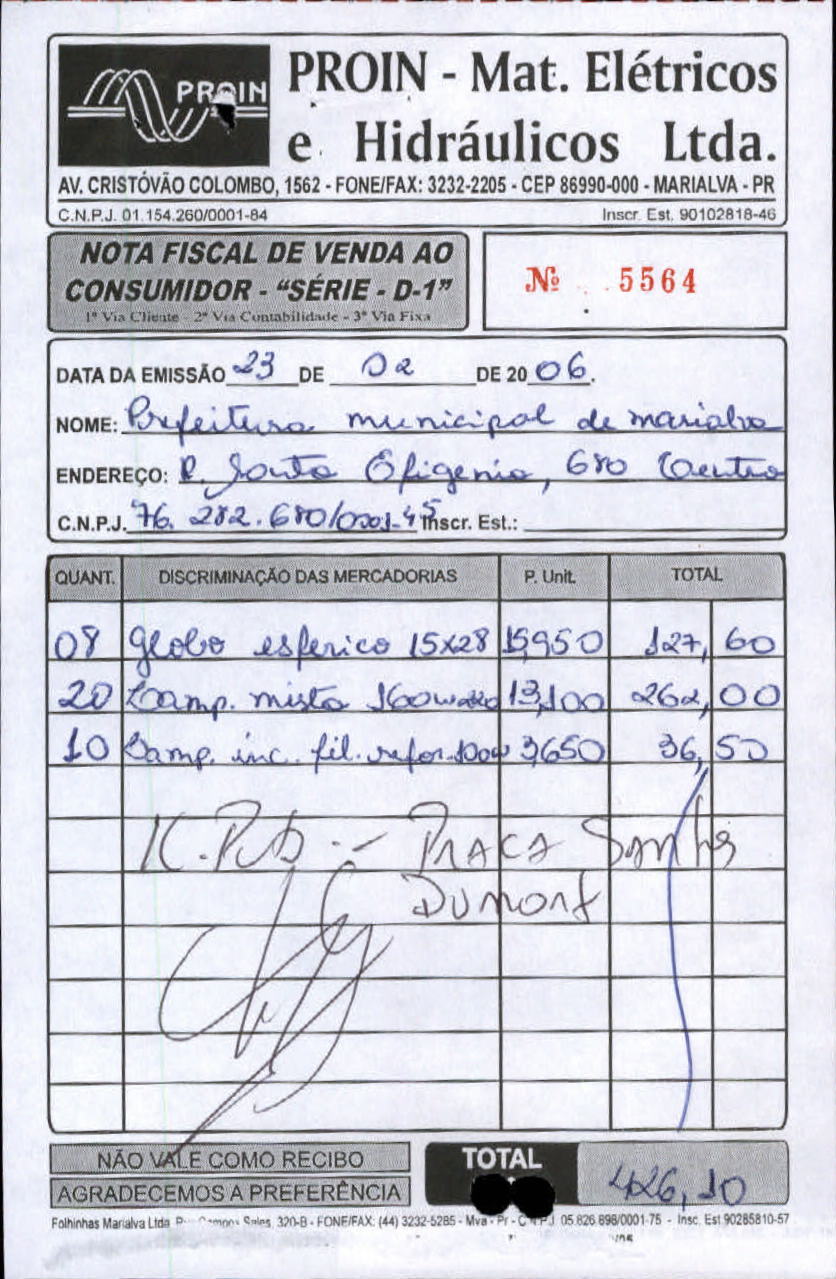 PROIN
PROIN - Mat. Elétricos
e Hidráulicos Ltda.
AV. CRISTÓVÃO COLOMBO, 1562 - FONE/FAX: 3232-2205 - CEP 86990-000 - MARIALVA - PR
C.N.P.J. 01.154.260/0001-84 Inscr. Est. 90102818-46
NOTA FISCAL DE VENDA AO
CONSUMIDOR - "SÉRIE - D-1"
1ª Via Cliente - 2ª Via Contabilidade - 3ª Via Fixa
Nº 5564
DATA DA EMISSÃO 23 DE 02 DE 20 06.
NOME: Prefeitura municipal de marialva
ENDEREÇO: R. Santa Efigenia, 680 Centro
C.N.P.J. 76.282.680/0001-45 Inscr. Est.:
QUANT. DISCRIMINAÇÃO DAS MERCADORIAS P. Unit. TOTAL
08 globo esferico 15x28 15,950 127,60
20 Lamp. mista 160w 220 13,100 262,00
10 Lamp. inc. fil. refor. 100w 3,650 36,50
PRACA Santos
Dumont
NÃO VALE COMO RECIBO
AGRADECEMOS A PREFERÊNCIA
TOTAL 426,10
Folhinhas Marialva Ltda Sales, 320-B - FONE/FAX: (44) 3232-5285 - Mva - Pr - C.N.P.J. 05.826.898/0001-75 - Insc. Est 90285810-57